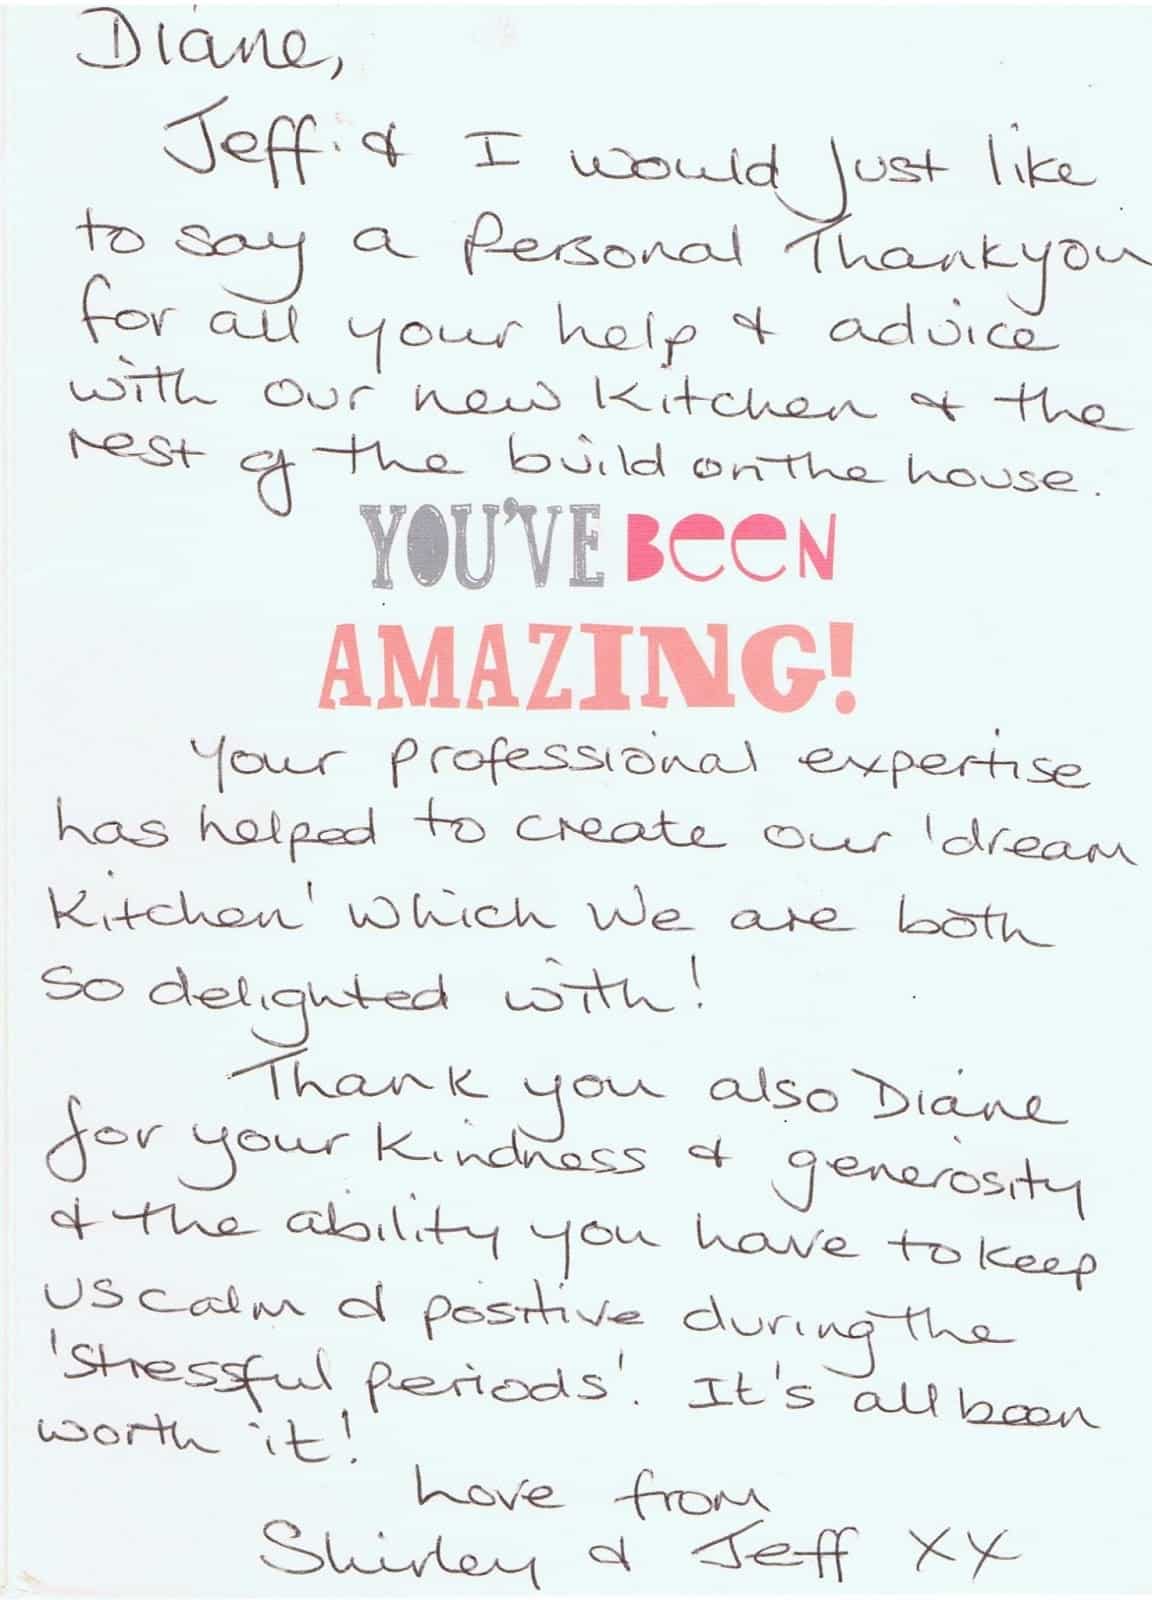 Diane,
Jeff & I would just like
to say a Personal Thankyou
for all your help & advice
with our new kitchen & the
rest of the build on the house.
YOU'VE BEEN
AMAZING!
Your professional expertise
has helped to create our 'dream
kitchen' which we are both
so delighted with!
Thank you also Diane
for your kindness & generosity
& the ability you have to keep
us calm & positive during the
'stressful periods'. It's all been
worth it!
Love from
Shirley & Jeff XX